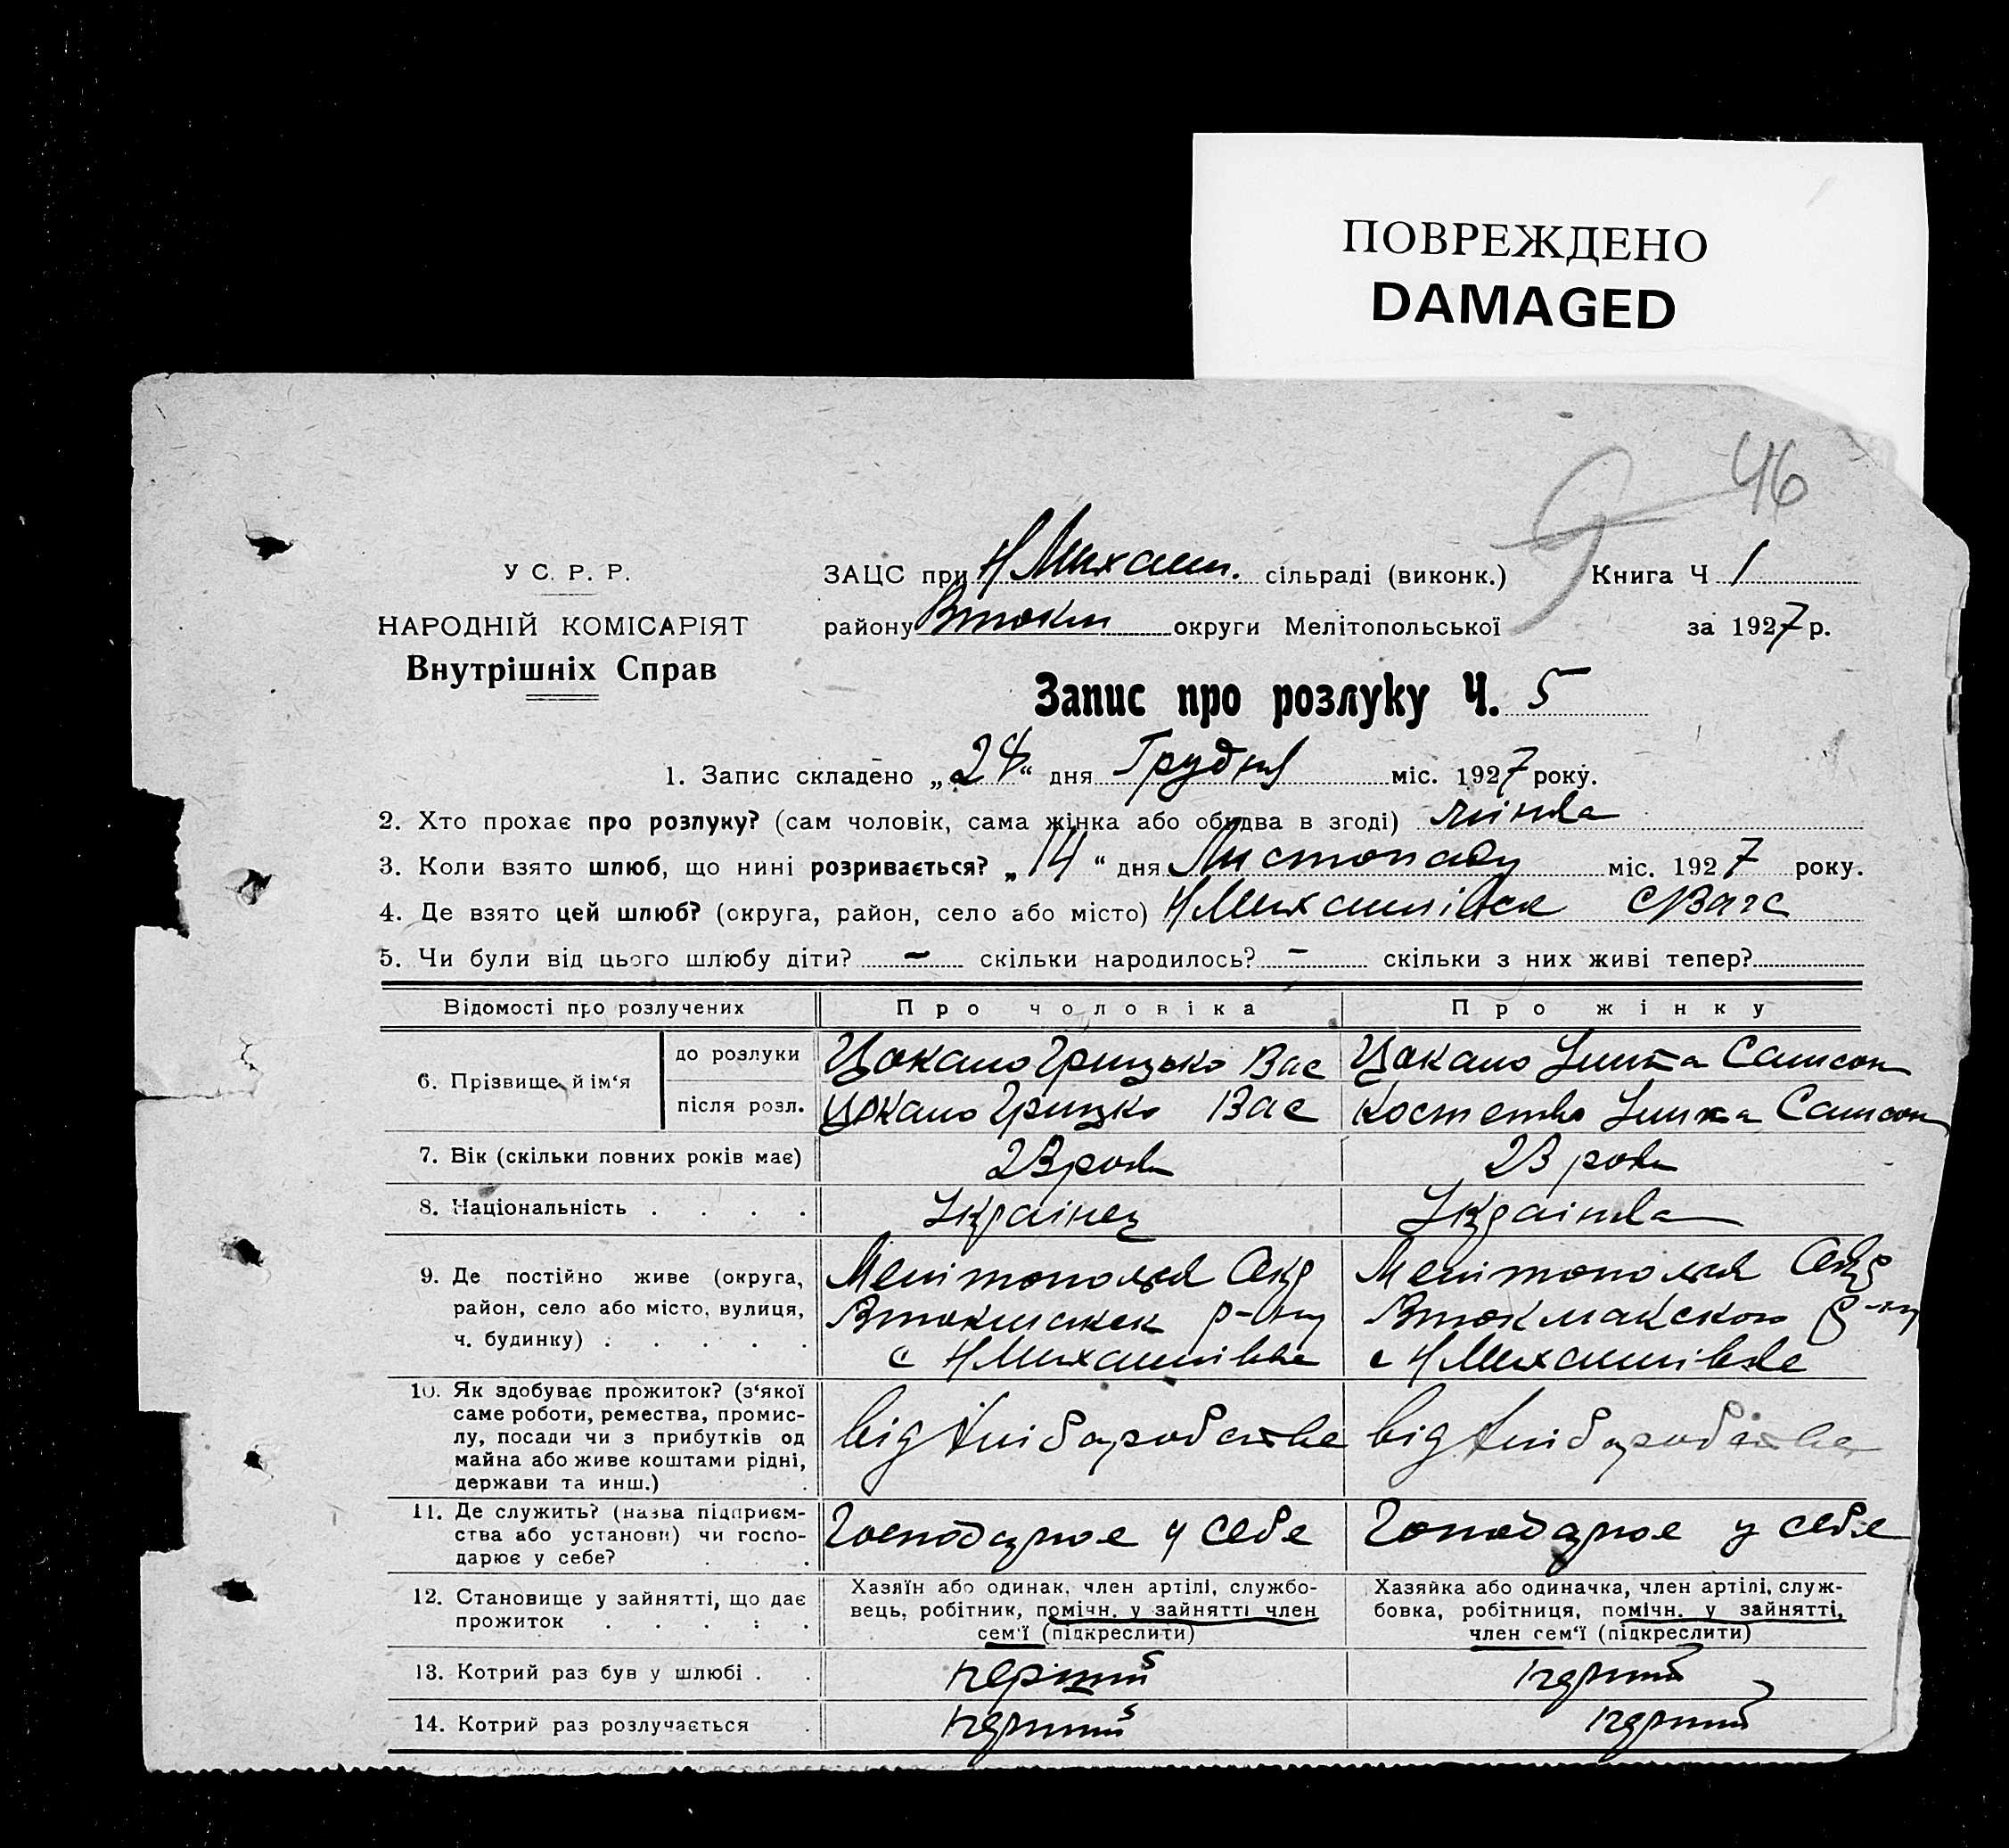 ПОВРЕЖДЕНО
DAMAGED
46
У С. Р. Р.
НАРОДНІЙ КОМІСАРІЯТ
Внутрішніх Справ
ЗАЦС при Н Михайл. сільраді (виконк.) Книга Ч 1
району Втокм округи Мелітопольської за 1927 р.
Запис про розлуку Ч. 5
1. Запис складено „28“ дня Грудня міс. 1927 року.
2. Хто прохає про розлуку? (сам чоловік, сама жінка або обидва в згоді) жінка
3. Коли взято шлюб, що нині розривається? „14“ дня Листопаду міс. 1927 року.
4. Де взято цей шлюб? (округа, район, село або місто) Н Михайлівск
5. Чи були від цього шлюбу діти? – скільки народилось? – скільки з них живі тепер?
Відомості про розлучених Про чоловіка Про жінку
6. Прізвище й ім‘я
до розлуки Цокало Грицько Вас Цокало Самсон
після розл. Цокало Грицко Вас Костенко Самсон
7. Вік (скільки повних років має) 23 роки 23 роки
8. Національність Українец Українка
9. Де постійно живе (округа, район, село або місто, вулиця, ч. будинку)
Мелітопольск Окр
Втокмакск р-ну
с Н Михайлівке
Мелітопольск Окр
Втокмакского р-ну
с Н Михайлівке
10. Як здобуває прожиток? (з‘якої
саме роботи, ремества, промис-
лу, посади чи з прибутків од
майна або живе коштами рідні,
держави та инш.)
від хліборобства від хліборобства
11. Де служить? (назва підприєм-
ства або установи) чи госпо-
дарює у себе?
Господарює у себе Господарює у себе
12. Становище у зайнятті, що дає
прожиток
Хазяїн або одинак, член артілі, службо-
вець, робітник, помічн. у зайнятті член
сем‘ї (підкреслити)
Хазяйка або одиначка, член артілі, служ-
бовка, робітниця, помічн. у зайнятті,
член сем‘ї (підкреслити)
13. Котрий раз був у шлюбі перший перший
14. Котрий раз розлучається перший перший